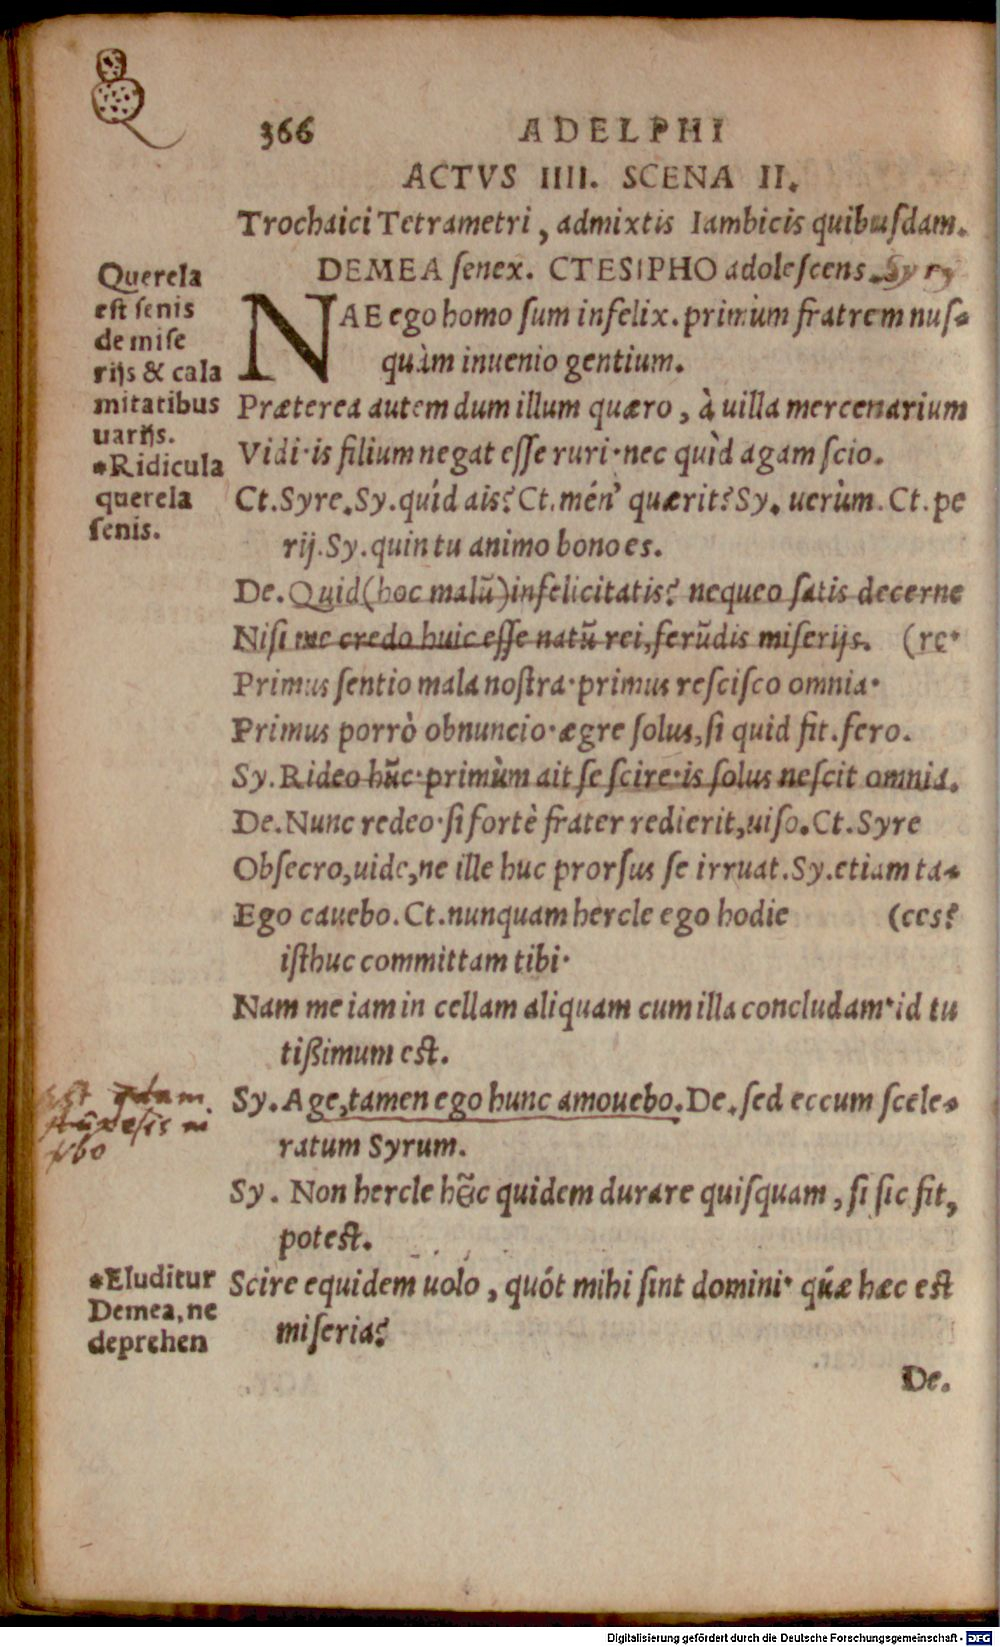 366 ADELPHI
ACTVS IIII. SCENA II.
Trochaici Tetrametri, admixtis Iambicis quibuſdam.
DEMEA ſenex. CTESIPHO adoleſcens. Syr9
Querela
est ſenis
de miſe
rijs & cala
mitatibus
uarijs.
*Ridicula
querela
ſenis.
NAE ego homo ſum infelix. primùm fratrem nuſ-
quàm inuenio gentium.
Præterea autem dum illum quæro, à uilla mercenarium
Vidi· is filium negat eſſe ruri· nec quìd agam ſcio.
Ct. Syre. Sy. quíd ais? Ct. mén' quærit? Sy. uerùm. Ct. pe
rij. Sy. quin tu animo bono es.
De. Quid (hoc malũ) infelicitatis? nequeo ſatis decerne
Niſi me credo huic eſſe natũ rei, ferũdis miſerijs. (re·
Primus ſentio mala noſtra· primus reſciſco omnia·
Primus porrò obnuncio· ægre ſolus, ſi quid fit. fero.
Sy. Rideo hũc· primùm ait ſe ſcire· is ſolus neſcit omnia.
De. Nunc redeo· ſi fortè frater redierit, uiſo. Ct. Syre
Obſecro, uide, ne ille huc prorſus ſe irruat. Sy. etiam ta-
Ego cauebo. Ct. nunquam hercle ego hodie (ces?
iſthuc committam tibi·
Nam me iam in cellam aliquam cum illa concludam· id tu
tißimum eſt.
Sy. Age, tamen ego hunc amouebo. De. ſed eccum ſcele-
ratum Syrum.
Sy. Non hercle hĩc quidem durare quiſquam, ſi ſic fit,
poteſt.
*Eluditur
Demea, ne
deprehen
Scire equidem uolo, quót mihi ſint domini· quæ hæc eſt
miſeria?
De.
Digitalisierung gefördert durch die Deutsche Forschungsgemeinschaft - DFG